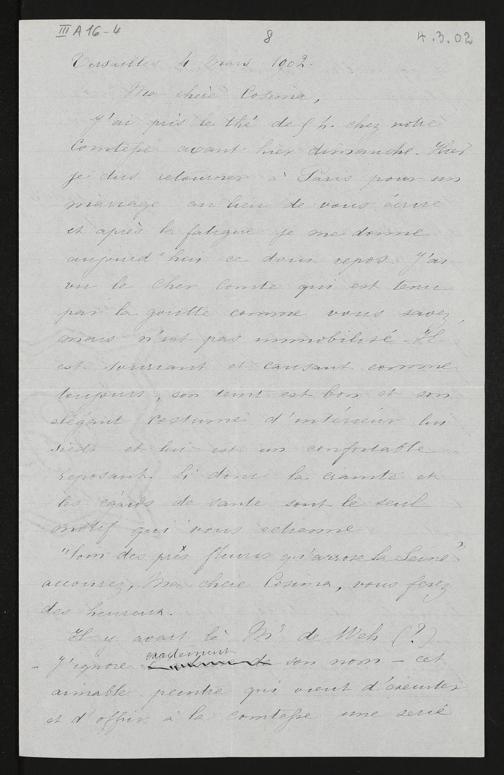 III A 16-4
8
4.3.02
Versailles 4 Mars 1902.
Ma chère Cosima,
J'ai pris le thé de 5 h. chez notre
Comtesse avant hier dimanche. Hier
je dus retourner à Paris pour un
mariage au lieu de vous écrire
et après la fatigue je me donne
aujourd'hui ce doux repos. J'ai
vu le cher Comte qui est tenu
par la goutte comme vous savez,
mais n'est pas immobilisé. Il
est souriant et causant comme
toujours, son teint est bon et son
élégant costume d'intérieur lui
sied et lui est un confortable
reposant. Si donc la crainte et
les égards de santé sont le seul
motif qui vous retienne
"loin des prés fleuris qu'arrose la Seine",
accourez, Ma chère Cosima, vous ferez
des heureux.
Il y avait là Mr de Weh (?)
- J'ignore exactement son nom – cet
aimable peintre qui vient d'exécuter
et d'offrir à la comtesse une série